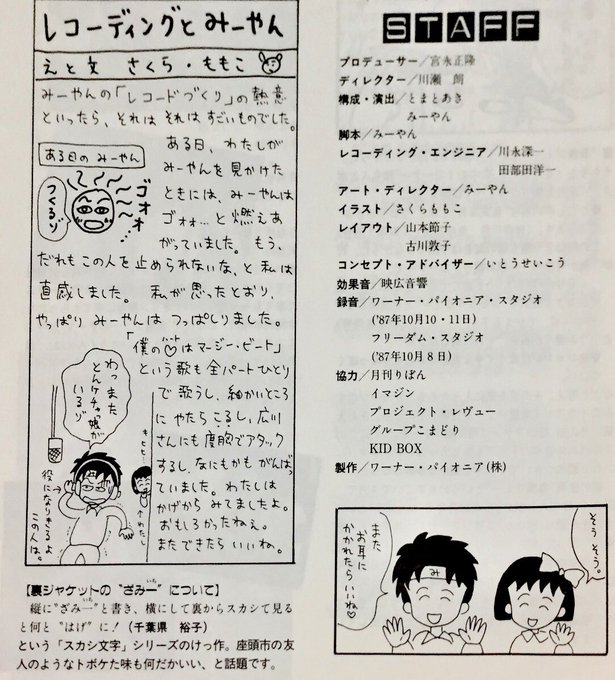 レコーディングと みーやん
え と 文　さくら・ももこ
みーやんの「レコードづくり」の熱意
といったら、それは それは すごいものでした。
ある日のみーやん
つくるゾ
ゴォォ…
ある日、わたしが
みーやんを見かけた
ときには、みーやんは
ゴォォ…と燃えあ
がっていました。もう、
だれもこの人を止められないな、と私は
直感しました。私が思ったとおり、
やっぱり みーやんは つっぱしりました。
「僕の♡はマージー・ビート」
ハート
という歌も全パートひとり
で歌うし、細かいところ
に やたらこるし、広川
さんにも度胸でアタック
するし、なにもかもがんばっ
ていました。わたしは
かげから みてましたよ。
おもしろかったねぇ。
またできたら いいね。
わっまた
とんケチャっ娘が
いるゾ
キヒヒ…
わたし
役になりきるよ
この人は。
【裏ジャケットの“ざみー”について】
いち
縦に“ざみー”と書き、横にして裏からスカシて見る
と何と“はげ”に！（千葉県　裕子）
という「スカシ文字」シリーズのけっ作。座頭市の友
人のようなトボケた味も何だかいい、と話題です。
STAFF
プロデューサー／宮永正隆
ディレクター／川瀬　朗
構成・演出／とまとあき
みーやん
脚本／みーやん
レコーディング・エンジニア／川永深一
田部田洋一
アート・ディレクター／みーやん
イラスト／さくらももこ
レイアウト／山本節子
古川敦子
コンセプト・アドバイザー／いとうせいこう
効果音／映広音響
録音／ワーナー・パイオニア・スタジオ
('87年10月10・11日)
フリーダム・スタジオ
('87年10月8日)
協力／月刊りぼん
イマジン
プロジェクト・レヴュー
グループこまどり
KID BOX
製作／ワーナー・パイオニア(株)
そうそう。
また
お耳に
かかれたらいいね♡
み